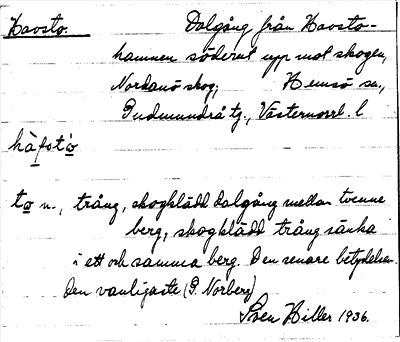 Havsto. Dalgång från Havsto-
hamnen söderut upp mot skogen,
Nordanö skog; Hemsö sn.,
Gudmundrå tg., Västernorrl. l
hàfstó
to n., trång, skogklädd dalgång mellan tvenne
berg, skogklädd trång sänka
i ett och samma berg. Den senare betydelsen
den vanligaste (P. Norberg)
Sven Hiller 1936.